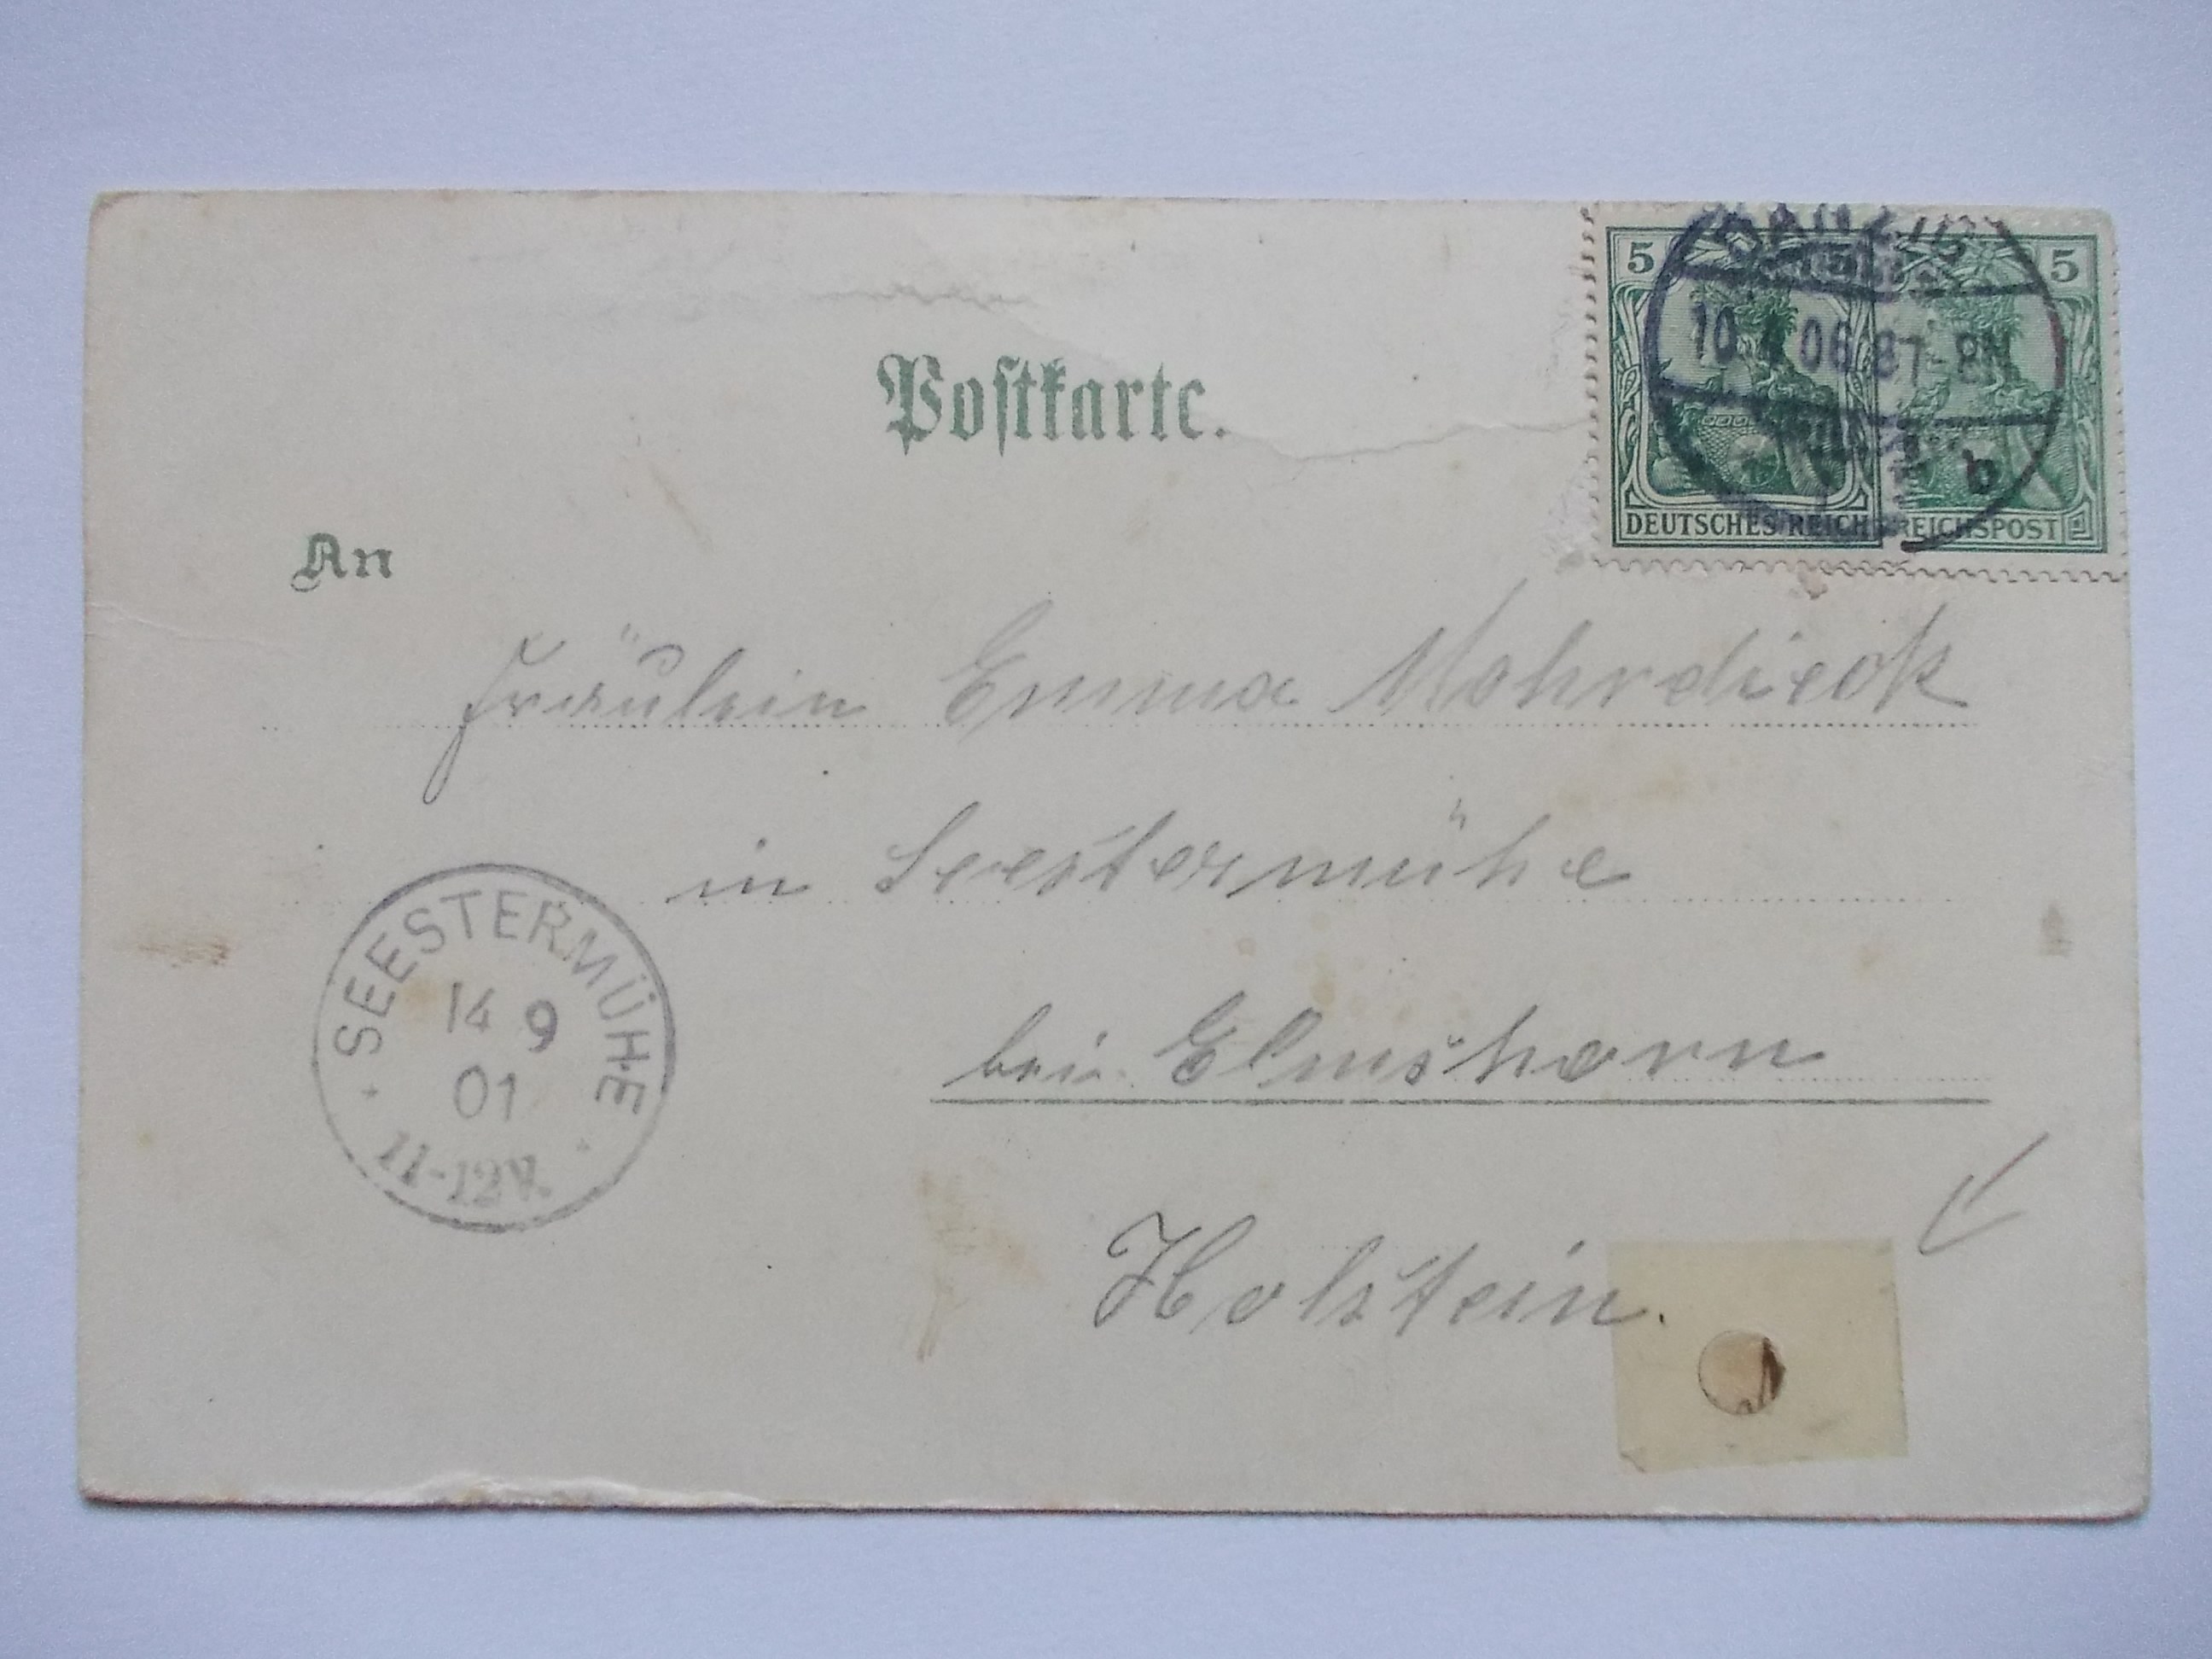 Postkarte.
5 5
DANZIG
10 06 8-
b
DEUTSCHES REICH REICHSPOST
An
Fräulein Emma Mohrdieck
in Seestermühe
SEESTERMÜHE
14 9
01
11-12V.
bei Elmshorn
Holstein.